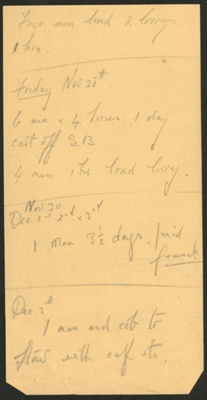 Four men load 2 lorrys.
1 hr.
Friday Nov 20th
6 men x 4 horses 1 day
cart off S.B.
4 men 1 hr load lorry.
Nov 30
Dec 1st 2nd x 3rd
1 Man 3½ days.
Dec 3rd
1 man and cob to
plow with